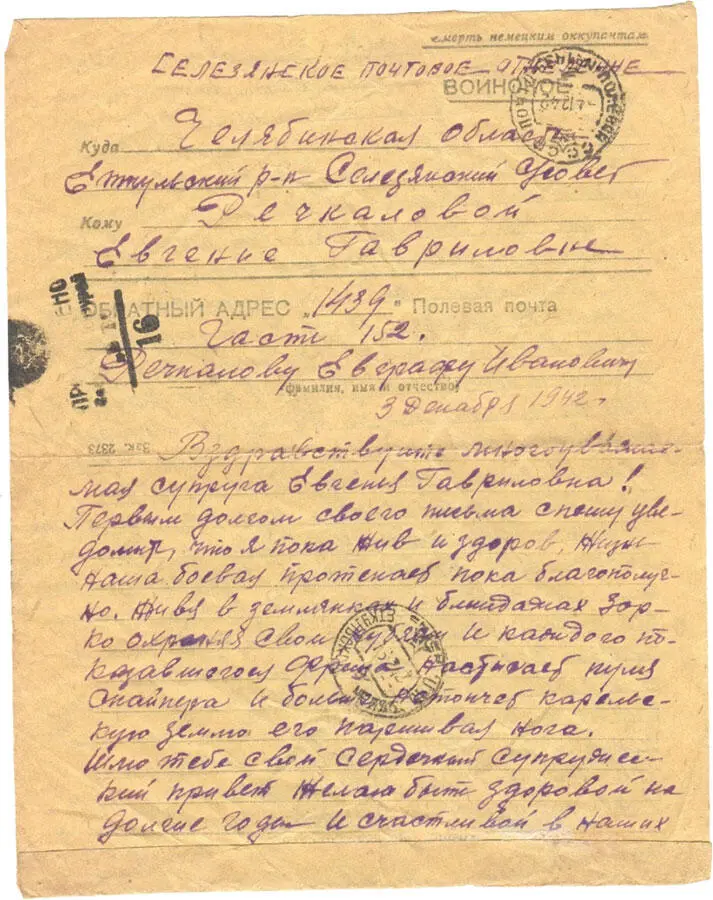 смерть немецким оккупантам
СЕЛЕЗЯНСКОЕ ПОЧТОВОЕ ОТДЕЛЕНИЕ
ВОИНСКОЕ
Куда Челябинская област
Еткульский р-н Селезянский С/совет
Кому Речкаловой
Евгение Гавриловне
ОБРАТНЫЙ АДРЕС „1439" Полевая почта
Части 152.
Речкалову Евграфу Ивановичу
(фамилия, имя и отчество)
3 Декабря 1942 г
Зак. 2373
Вздравствуйте многоуважае-
мая супруга Евгения Гавриловна!
Первым долгом своего письма спешу уве-
домит, что я пока жив и здоров, Жизнь
наша боевая протекает пока благополуч-
но. Живя в землянках и блиндажах Зор-
ко охраняя свои рубежи И каждого по-
казавшегося Фрица настигает пуля
Снайпера И больше не топчет карельс-
кую землю его паршивая нога.
Шлю тебе свой Сердечный Супружес-
кий привет Желаю быть здоровой на
долгие годы И счастливой в наших
16